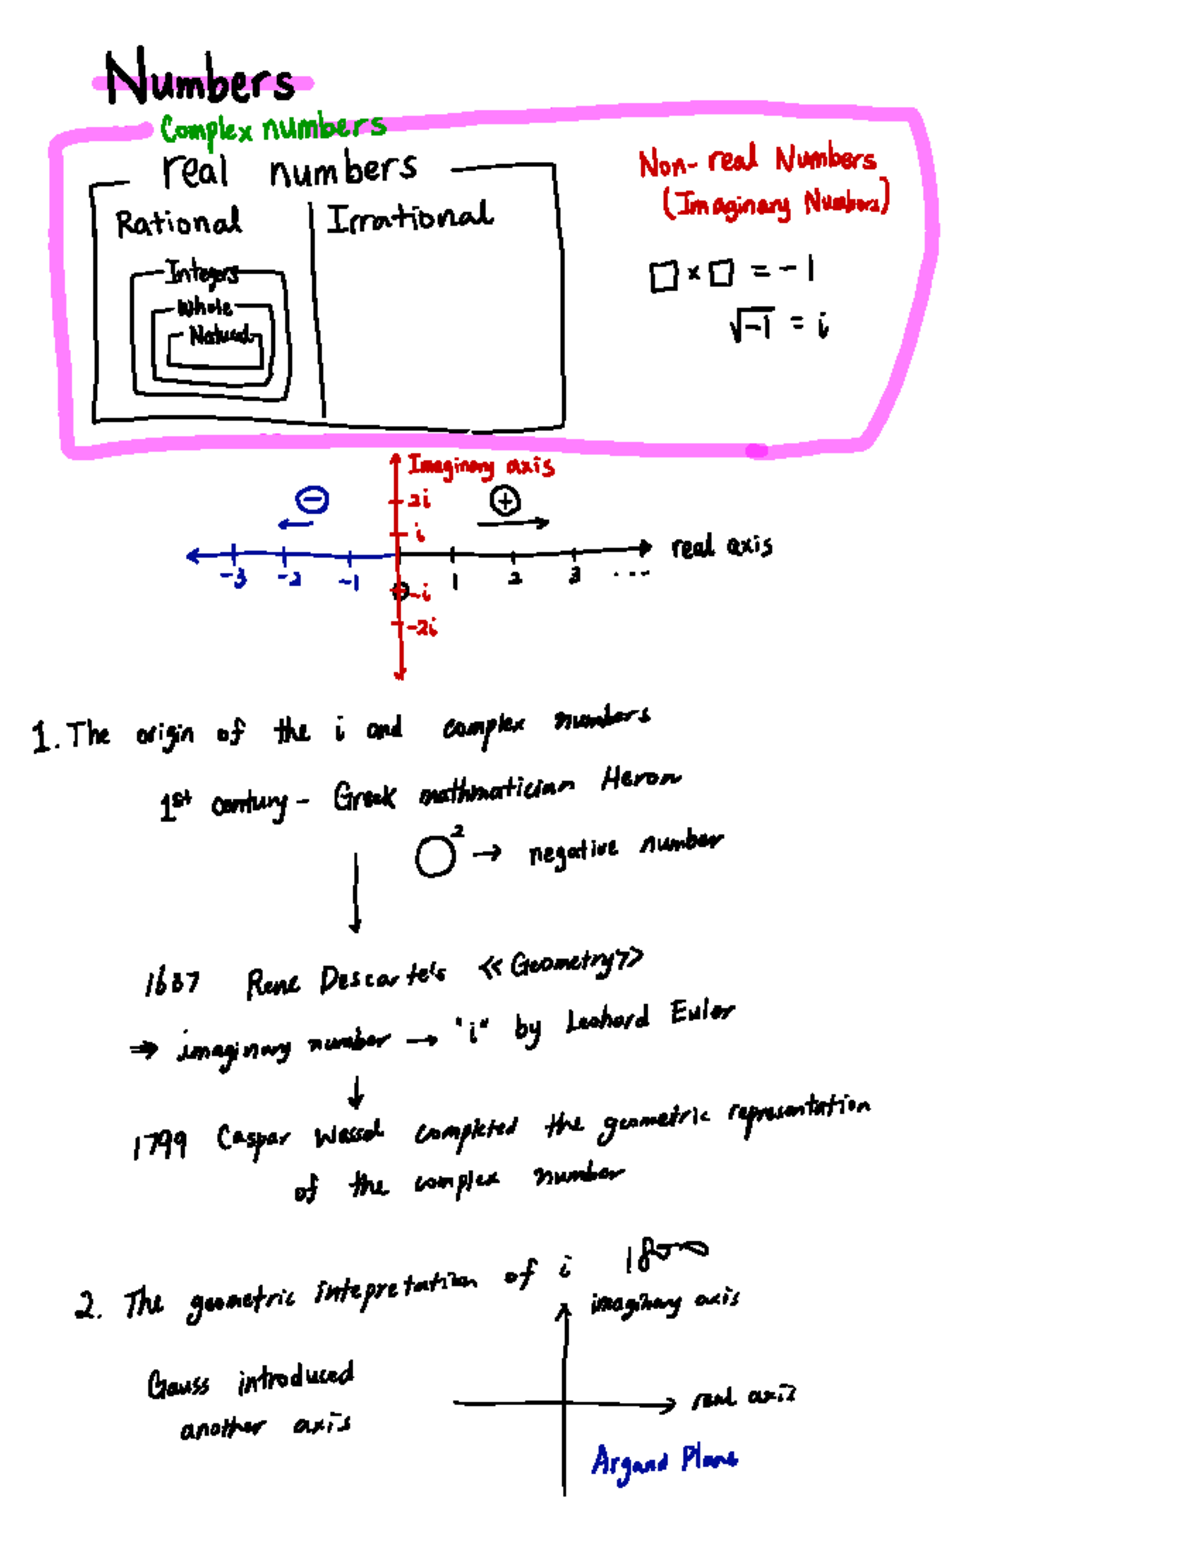 Numbers
Complex numbers
real numbers
Non-real Numbers
(Imaginary Numbers)
Rational
Irrational
Integers
Whole
Natural
□ × □ = -1
√-1 = i
Imaginary axis
⊖
2i
⊕
i
real axis
-3 -2 -1 0 1 2 3 ...
-i
-2i
1. The origin of the i and complex numbers
1st century - Greek mathmatician Heron
○² → negative number
1637 Rene Descarte's <<Geometry>>
⇒ imaginary number → "i" by Leohard Euler
1799 Caspar Wessel completed the geometric representation
of the complex number
2. The geometric intepretation of i 1800
imaginary axis
Gauss introduced
another axis
real axis
Argand Plane